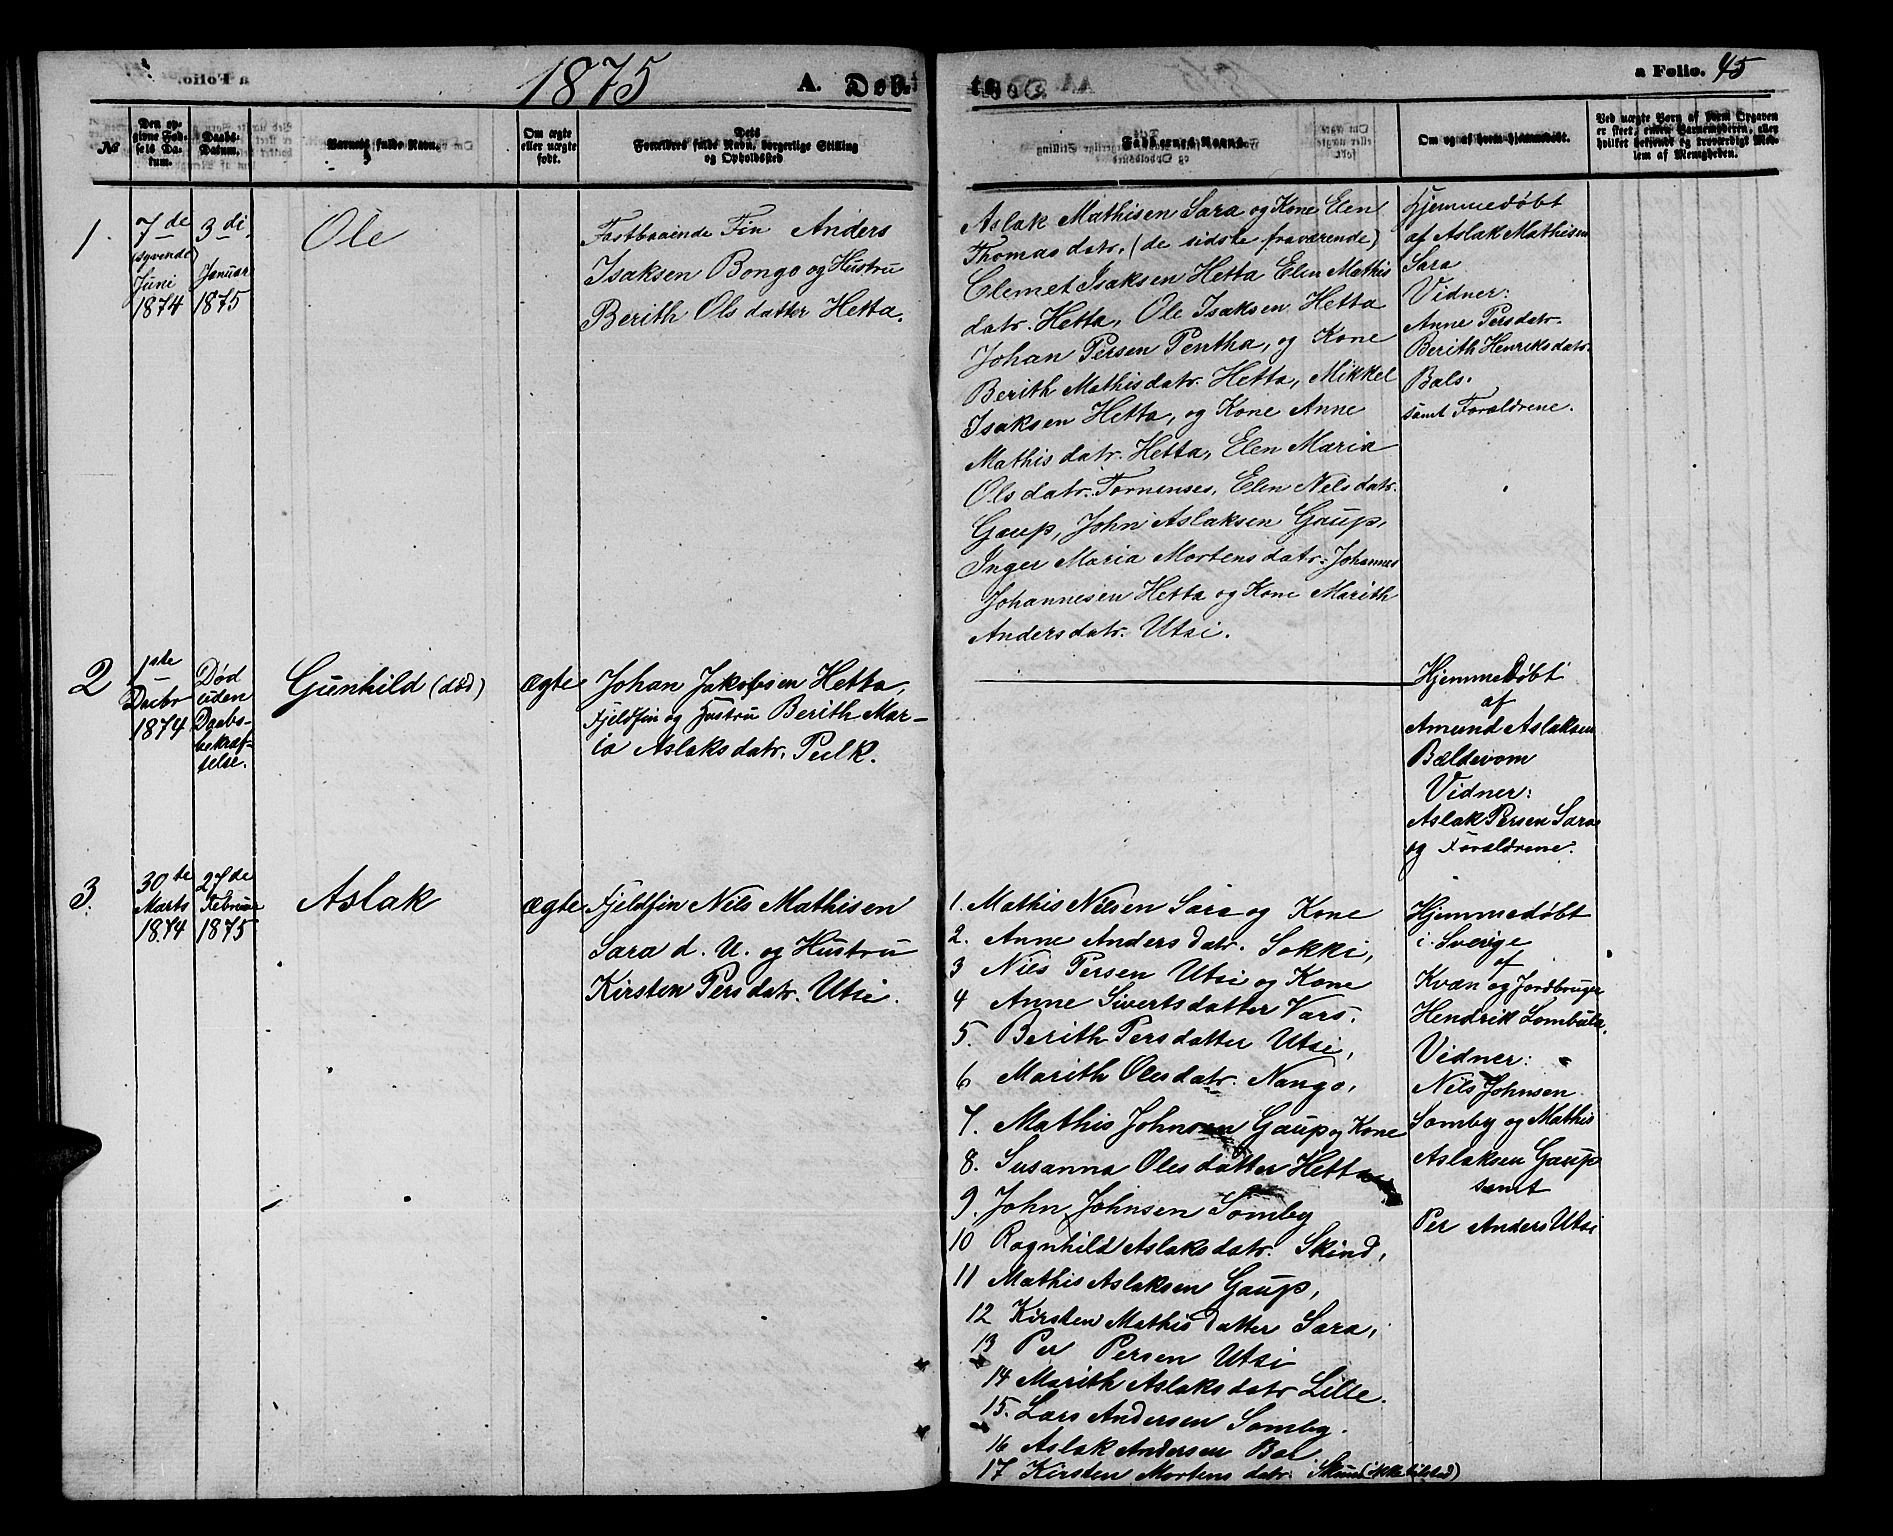 1875
A. Døb
te
a Folio. 45
No
Den opgivne Fødsels Datum.
Daabs-Datum.
Barnets fulde Navn.
Om ægte eller uægte født.
Dets Forældres fulde Navn, borgerlige Stilling og Opholdssted
Faddernes Navne.
Om og af hvem hjemmedøbt.
Ved uægte Børn af hvem Opgaven er skeet, enten Barnemoderen, eller hvilket bekjendt og troværdigt Medlem af Menigheden.
1.
7de
(syvende)
Juni
1874
3di
Januar
1875
Ole
Fastboende Fin Anders
Isaksen Bongo og Hustru
Berith Olsdatter Hetta.
Aslak Mathisen Sara og Kone Elen
Thomasdatr. (de sidste fraværende)
Clemet Isaksen Hetta Elen Mathis
datr. Hetta, Ole Isaksen Hetta
Johan Persen Pentha, og Kone
Berith Mathisdatr. Hetta, Mikkel
Isaksen Hetta, og Kone Anne
Mathisdatr. Hetta, Elen Maria
Olsdatr. Tornenses, Elen Nelsdatr.
Gaup, John Aslaksen Gaup,
Inger Maria Mortensdatr. Johannes
Johannesen Hetta og Kone Marith
Andersdatr. Utsi.
Hjemmedøbt
af Aslak Mathisen
Sara
Vidner:
Anne Persdatr.
Berith Henriksdatr.
Bals.
samt Forældrene.
2
1ste
Decbr
1874
Død
uden
Daabs-
bekræf-
telse.
Gunhild (død)
ægte
Johan Jakobsen Hetta,
Fjeldfin og Hustru Berith Mar-
ia Aslaksdatr. Pulk.
Hjemmedøbt
af
Amund Aslaksen
Bældevom
Vidner:
Aslak Persen Sara
og Forældrene.
3.
30te
Marts
1874
27de
Februar
1875
Aslak
ægte
Fjeldfin Nils Mathisen
Sara d. U. og Hustru
Kirsten Persdatr. Utsi.
1. Mathis Nilsen Sara og Kone
2. Anne Andersdatr. Sokki,
3 Nils Persen Utsi og Kone
4 Anne Sivertsdatter Vars.
5. Berith Persdatter Utsi,
6 Marith Olesdatr. Nango,
7. Mathis Johnsen Gaup og Kone
8. Susanna Olesdatter Hetta
9. John Johnsen Somby
10 Ragnhild Aslaksdatr. Skind,
11 Mathis Aslaksen Gaup,
12 Kirsten Mathisdatter Sara,
13 Per Persen Utsi
14 Marith Aslaksdatr Lille.
15. Lars Andersen Somby.
16 Aslak Andersen Bal.
17 Kirsten Mortensdatr.
Hjemmedøbt
i Sverige
af
Kvæn og Jordbruger
Hendrik Lombula.
Vidner:
Nils Johnsen
Somby og Mathis
Aslaksen Gaup
samt
Per Anders Utsi